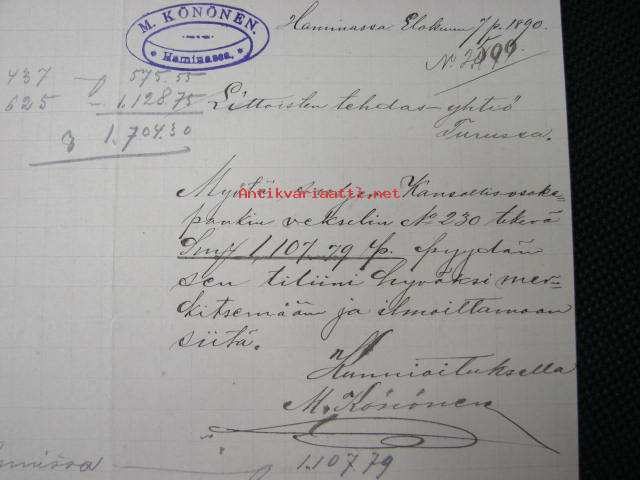 M. KÖNÖNEN.
Haminassa.
Haminassa Elokuun 7 p. 1890.
437 — 575.55
625 — 1.128 75
1.704.30
Littoisten tehdas-yhtiö
Turussa.
Myötä Kansallisosake-
pankin vekselin No 230 tekevä
Smf 1,107.79 p. pyydän
sen tiliini hyväksi mer-
kitsemään ja ilmoittamaan
siitä.
Kunnioituksella
M. Könönen
1.107.79
Antikvariaatti.net